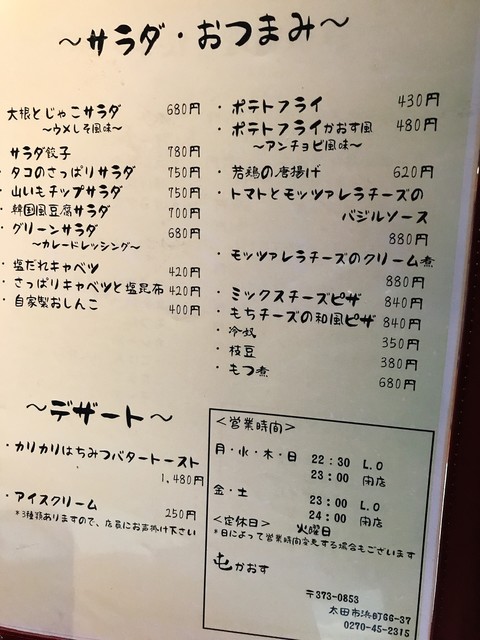 ～サラダ・おつまみ～
大根とじゃこサラダ 680円
～ウメしそ風味～
サラダ餃子 780円
・タコのさっぱりサラダ 750円
・山いもチップサラダ 750円
・韓国風豆腐サラダ 700円
・グリーンサラダ 680円
～カレードレッシング～
・塩だれキャベツ 420円
・さっぱりキャベツと塩昆布 420円
・自家製おしんこ 400円
・ポテトフライ 430円
・ポテトフライかおす風 480円
～アンチョビ風味～
・若鶏の唐揚げ 620円
・トマトとモッツァレラチーズの
バジルソース
880円
・モッツァレラチーズのクリーム煮
880円
・ミックスチーズピザ 840円
・もちチーズの和風ピザ 840円
・冷奴 350円
・枝豆 380円
・もつ煮 680円
～デザート～
・カリカリはちみつバタートースト
1,480円
・アイスクリーム 250円
*3種類ありますので、店員にお声掛け下さい
＜営業時間＞
月・水・木・日 22：30 L.O
23：00 閉店
金・土 23：00 L.O
24：00 閉店
＜定休日＞ 火曜日
*日によって営業時間変更する場合もございます
屯かおす
〒373-0853
太田市浜町66-37
0270-45-2315